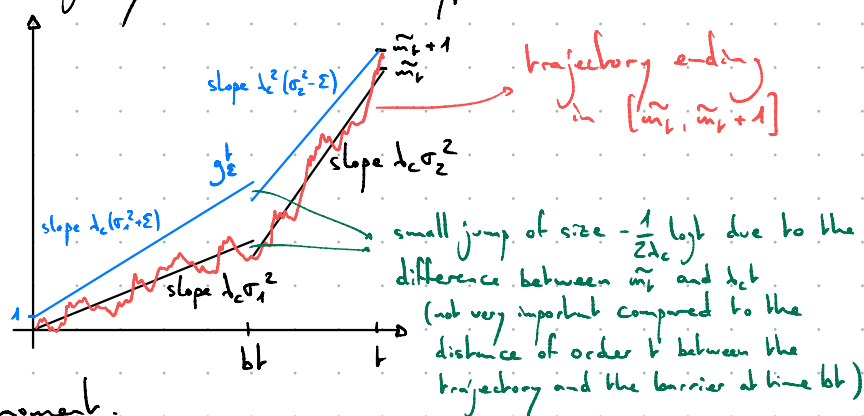 m̃_t + 1
m̃_t
slope λ_c²(σ_2² - ε)
trajectory ending
in [m̃_t, m̃_t + 1]
g_ε^t
slope λ_c σ_2²
slope λ_c(σ_1² + ε)
small jump of size - 1/(2λ_c) log t due to the
difference between m̃_t and λ_c t
slope λ_c σ_1²
(not very important compared to the
1
distance of order t between the
bt
t
trajectory and the barrier at time bt)
moment.